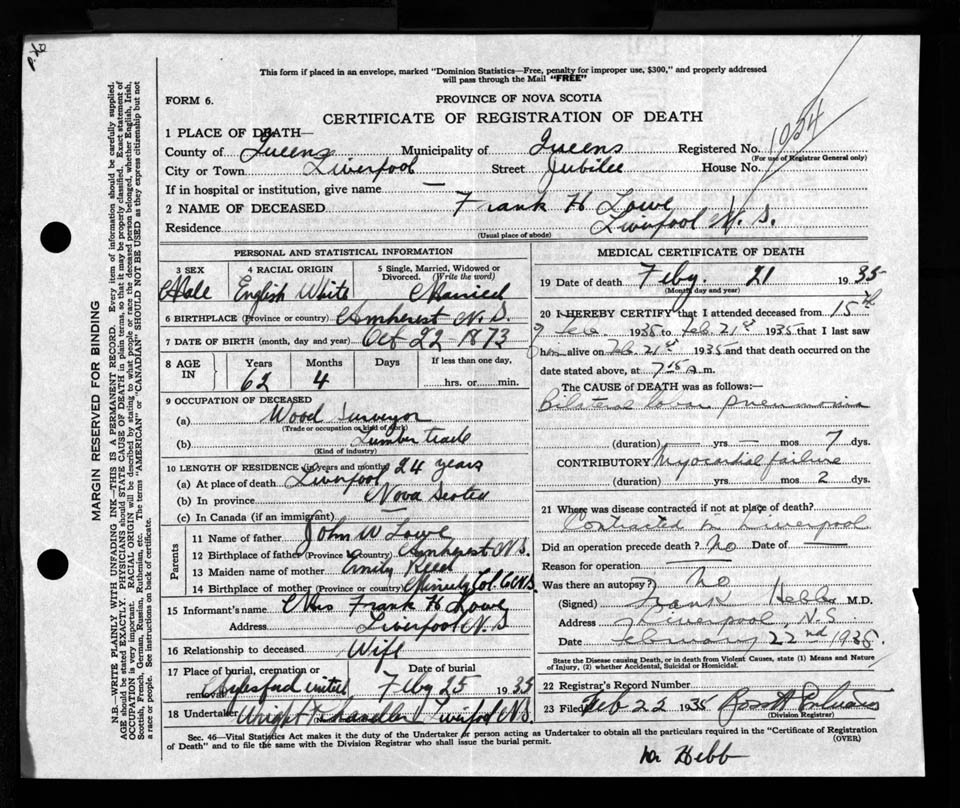 This form if placed in an envelope, marked "Dominion Statistics—Free, penalty for improper use, $300," and properly addressed
will pass through the Mail "FREE"
FORM 6.
PROVINCE OF NOVA SCOTIA
CERTIFICATE OF REGISTRATION OF DEATH
1054
1 PLACE OF DEATH—
County of Queens Municipality of Queens Registered No.
(For use of Registrar General only)
City or Town Liverpool Street Jubilee House No.
If in hospital or institution, give name —
2 NAME OF DECEASED Frank H Lowe
Residence Liverpool N.S.
(Usual place of abode)
PERSONAL AND STATISTICAL INFORMATION
3 SEX 4 RACIAL ORIGIN 5 Single, Married, Widowed or
Divorced. (Write the word)
Male English White Married
6 BIRTHPLACE (Province or country) Amherst N.S.
7 DATE OF BIRTH (month, day and year) Oct 22 1873
8 AGE IN Years Months Days If less than one day,
62 4 hrs. or min.
9 OCCUPATION OF DECEASED
(a) Wood Surveyor
(Trade or occupation or kind of work)
(b) Lumber trade
(Kind of industry)
10 LENGTH OF RESIDENCE (in years and months) 24 years
(a) At place of death Liverpool
(b) In province Nova Scotia
(c) In Canada (if an immigrant) —
Parents
11 Name of father John W Lowe
12 Birthplace of father (Province or country) Amherst N.S.
13 Maiden name of mother Emily Reed
14 Birthplace of mother (Province or country) Col. Co N.S.
15 Informant's name Mrs Frank H Lowe
Address Liverpool N.S
16 Relationship to deceased Wife
17 Place of burial, cremation or Date of burial
removal Feby 25 1935
18 Undertaker Wright & Chandler Liverpool N.S.
MEDICAL CERTIFICATE OF DEATH
19 Date of death Feby. 21 1935
(Month, day and year)
20 I HEREBY CERTIFY that I attended deceased from 15th
of Feb. 1935 to Feb. 21st 1935 that I last saw
him alive on Feb. 21st 1935 and that death occurred on the
date stated above, at 7 a.m.
The CAUSE OF DEATH was as follows:—
Bilateral lobar pneumonia
(duration) — yrs — mos 7 dys.
CONTRIBUTORY Myocardial failure
(duration) yrs mos 2 dys.
21 Where was disease contracted if not at place of death?
Contracted in Liverpool
Did an operation precede death? No Date of —
Reason for operation —
Was there an autopsy? No
(Signed) Frank Hebb M.D.
Address Liverpool, N.S.
Date February 22nd 1935.
State the Disease causing Death, or in death from Violent Causes, state (1) Means and Nature
of Injury, (2) whether Accidental, Suicidal or Homicidal.
22 Registrar's Record Number
23 Filed Feb 22 1935
(Division Registrar)
Sec. 46—Vital Statistics Act makes it the duty of the Undertaker or person acting as Undertaker to obtain all the particulars required in the "Certificate of Registration
of Death" and to file the same with the Division Registrar who shall issue the burial permit. (OVER)
Dr Hebb
MARGIN RESERVED FOR BINDING
N.B.—WRITE PLAINLY WITH UNFADING INK—THIS IS A PERMANENT RECORD. Every item of information should be carefully supplied.
AGE should be stated EXACTLY. PHYSICIANS should STATE CAUSE OF DEATH in plain terms, so that it may be properly classified. Exact statement of
OCCUPATION is very important. RACIAL ORIGIN will be described by stating to what people or race the deceased person belonged, whether English, Irish,
Scottish, French, German, Russian, Ruthenian, etc. The terms "AMERICAN" or "CANADIAN" SHOULD NOT BE USED as they express citizenship but not
a race or people. See instructions on back of certificate.